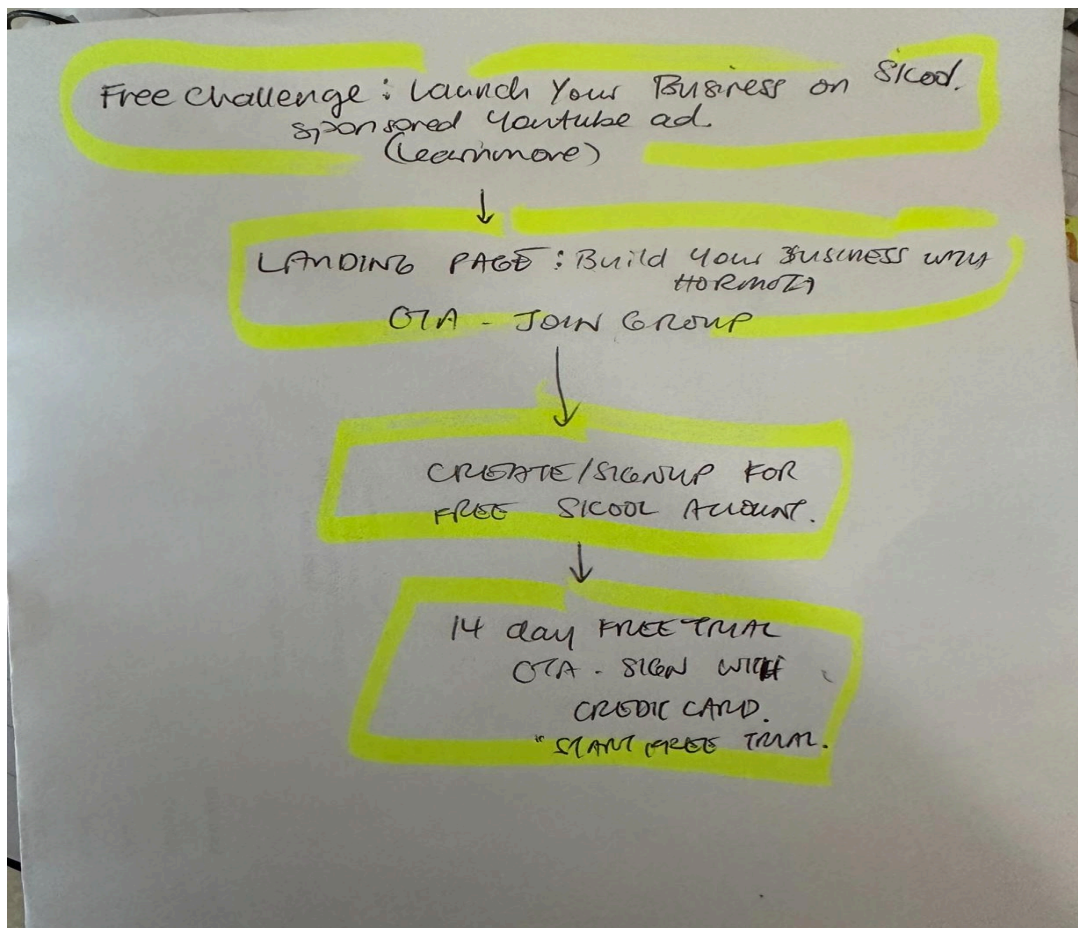 Free Challenge: Launch Your Business on Skool.
sponsored Youtube ad.
(Learnmore)
LANDING PAGE: Build Your BUSINESS WITH
HORMOZI
CTA - JOIN GROUP
CREATE/SIGNUP FOR
FREE SKOOL ACCOUNT.
14 day FREE TRIAL
CTA - SIGN WITH
CREDIT CARD.
" START FREE TRIAL.